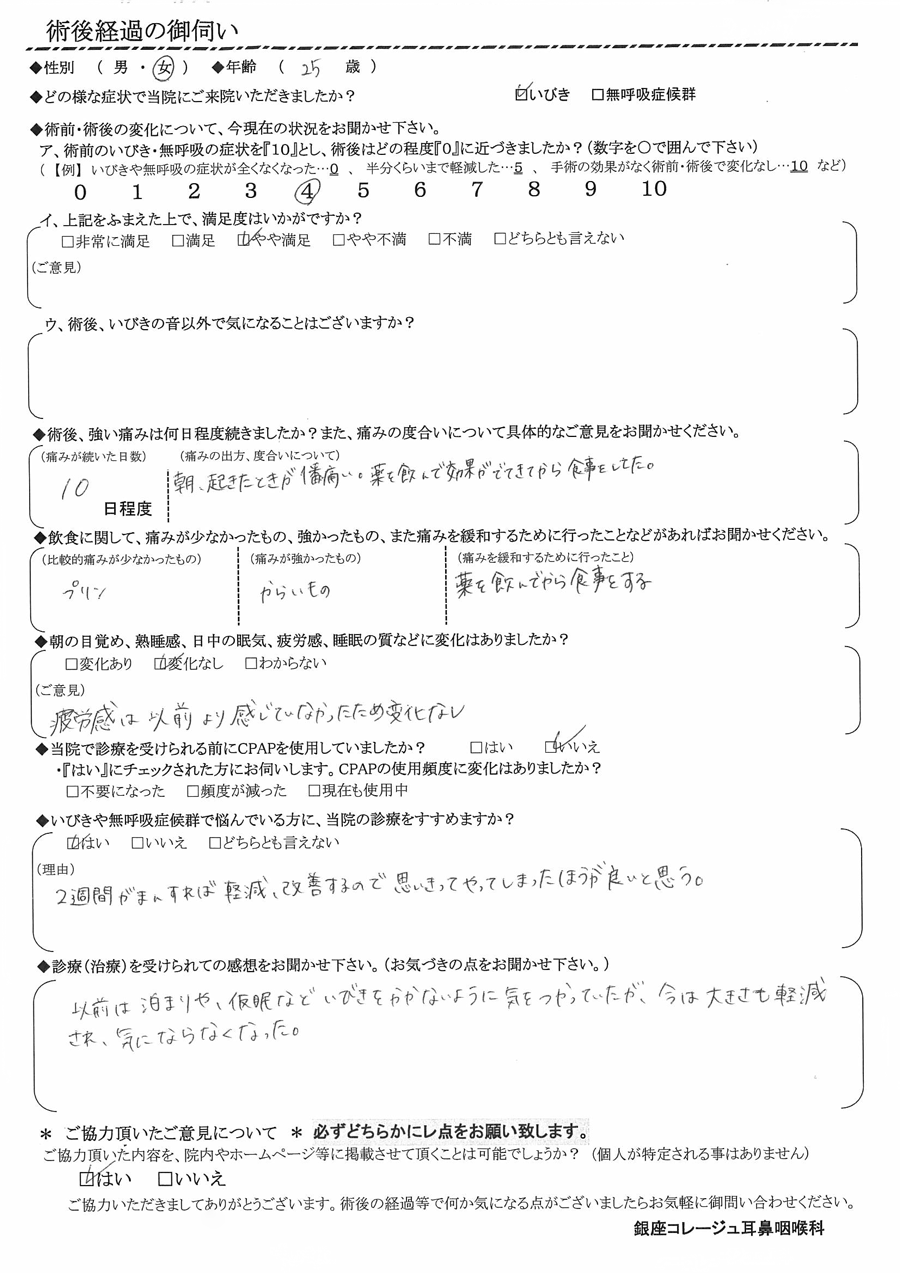 術後経過の御伺い
◆性別 ( 男 ・ 女 ) ◆年齢 ( 25 歳 )
◆どの様な症状で当院にご来院いただきましたか? ☑いびき □無呼吸症候群
◆術前・術後の変化について、今現在の状況をお聞かせ下さい。
ア、術前のいびき・無呼吸の症状を『10』とし、術後はどの程度『0』に近づきましたか?(数字を○で囲んで下さい)
(【例】いびきや無呼吸の症状が全くなくなった…0 、 半分くらいまで軽減した…5 、 手術の効果がなく術前・術後で変化なし…10 など)
0 1 2 3 ④ 5 6 7 8 9 10
イ、上記をふまえた上で、満足度はいかがですか?
□非常に満足 □満足 ☑やや満足 □やや不満 □不満 □どちらとも言えない
(ご意見)
ウ、術後、いびきの音以外で気になることはございますか?
◆術後、強い痛みは何日程度続きましたか?また、痛みの度合いについて具体的なご意見をお聞かせください。
(痛みが続いた日数) (痛みの出方、度合いについて)
朝、起きたときが1番痛い。薬を飲んで効果がでてきてから食事をしてた。
10 日程度
◆飲食に関して、痛みが少なかったもの、強かったもの、また痛みを緩和するために行ったことなどがあればお聞かせください。
(比較的痛みが少なかったもの) (痛みが強かったもの) (痛みを緩和するために行ったこと)
プリン からいもの 薬を飲んでから食事をする
◆朝の目覚め、熟睡感、日中の眠気、疲労感、睡眠の質などに変化はありましたか?
□変化あり ☑変化なし □わからない
(ご意見)
疲労感は以前より感じていなかったため変化なし
◆当院で診療を受けられる前にCPAPを使用していましたか? □はい ☑いいえ
・『はい』にチェックされた方にお伺いします。CPAPの使用頻度に変化はありましたか?
□不要になった □頻度が減った □現在も使用中
◆いびきや無呼吸症候群で悩んでいる方に、当院の診療をすすめますか?
☑はい □いいえ □どちらとも言えない
(理由)
2週間がまんすれば軽減、改善するので思いきってやってしまったほうが良いと思う。
◆診療(治療)を受けられての感想をお聞かせ下さい。(お気づきの点をお聞かせ下さい。)
以前は泊まりや、仮眠などいびきをかかないように気をつかっていたが、今は大きさも軽減
され、気にならなくなった。
* ご協力頂いたご意見について * 必ずどちらかにレ点をお願い致します。
ご協力頂いた内容を、院内やホームページ等に掲載させて頂くことは可能でしょうか? (個人が特定される事はありません)
☑はい □いいえ
ご協力いただきましてありがとうございます。術後の経過等で何か気になる点がございましたらお気軽に御問い合わせください。
銀座コレージュ耳鼻咽喉科